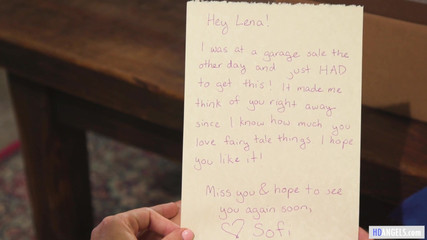 Hey Lena!
I was at a garage sale the
other day and just HAD
to get this! It made me
think of you right away
since I know how much you
love fairy tale things. I hope
you like it!
Miss you & hope to see
you again soon,
♡ Sofi
HDANGELS.COM